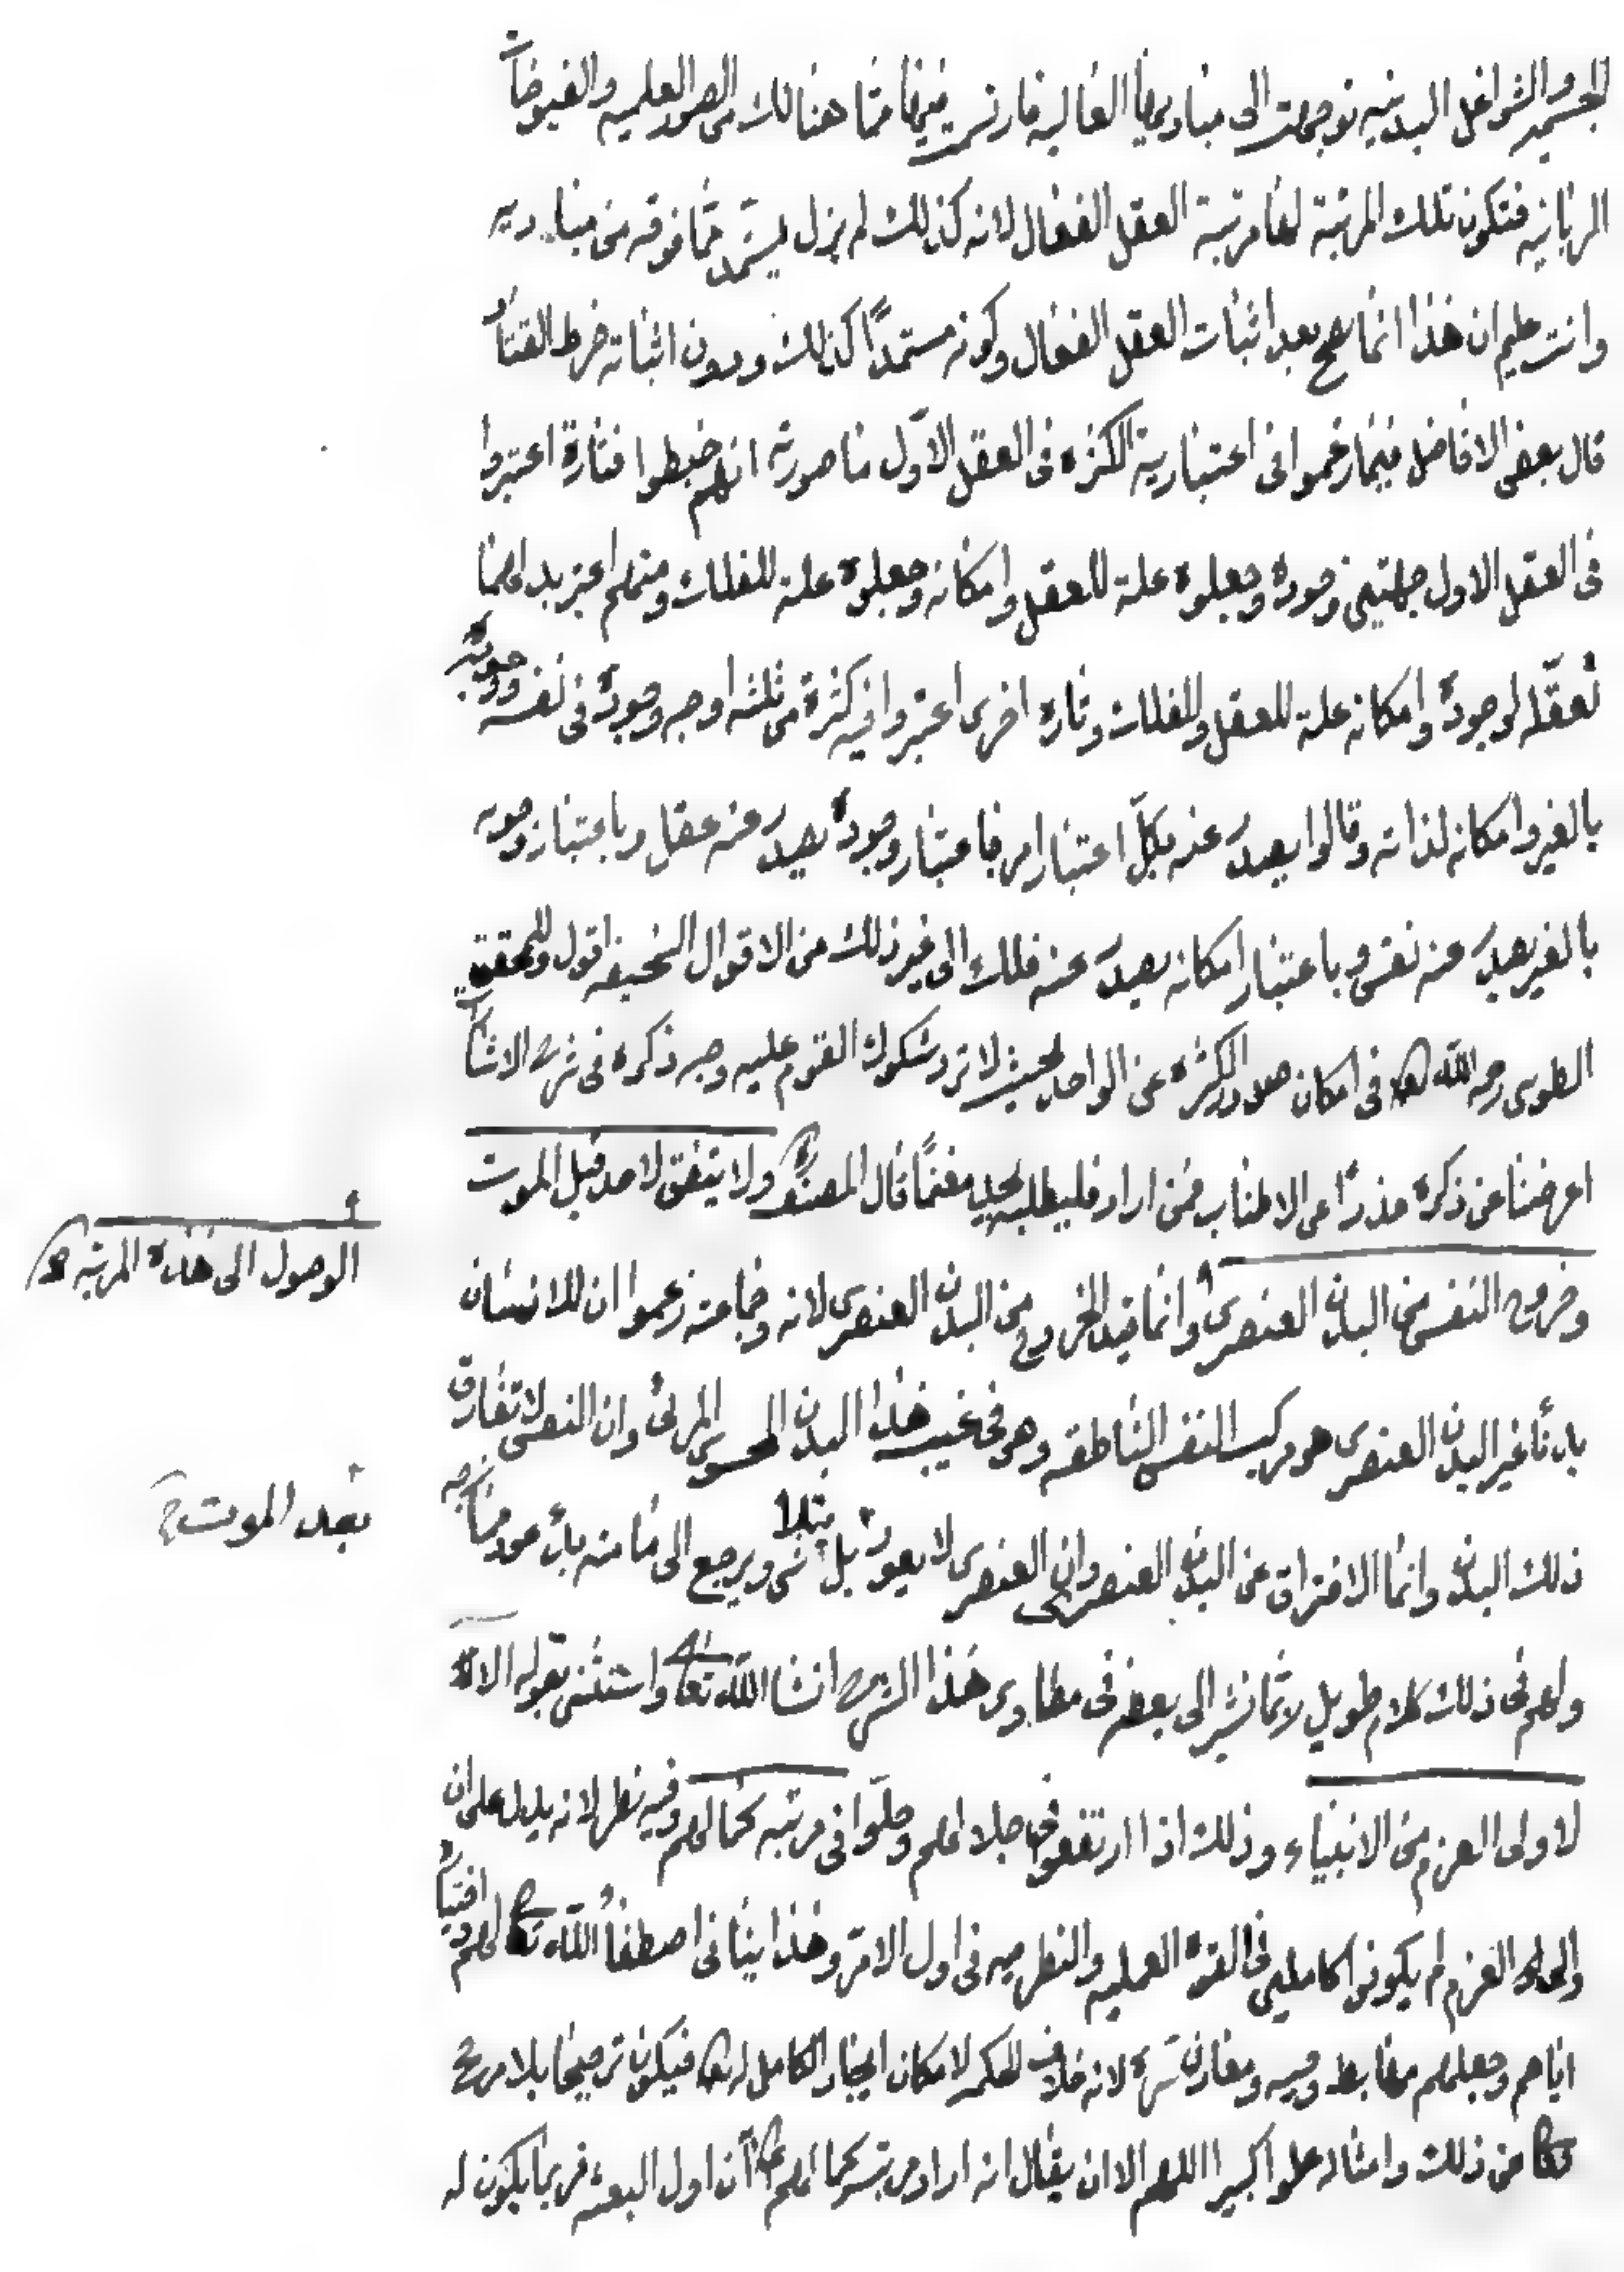 الجسميه والشواغل البدنيه توجهت الى مباديها العاليه فارتسم فيها مما هنالك من الصور العلميه والفيوضات
الربانيه فتكون تلك المرتبة لها مرتبة العقل الفعال لانه كذلك لم يزل يستمد مما فوقه من مباديه
وانت عليم ان هذا انما يصح بعد اثبات العقل الفعال وكونه مستمدًا كذلك ودون اثباته خرط القتاد
قال بعض الافاضل فيما زعموا فى اعتبارية الكثرة فى العقل الاوّل ما صورته انهم خبطوا فتارة اعتبروا
فى العقل الاول جهتين وجوده وجعلوه علة للعقل وامكانه وجعلوه علة للفلك ومنهم اعتبر بدلهما
تعقّله لوجوده وامكانه علة للعقل وللفلك وتارة اخرى اعتبروا فيه كثرة من ثلثه اوجه وجوده فى نفسه ووجوبه
بالغير وامكانه لذاته وقالوا يصدر عنه بكلّ اعتبار امر فباعتبار وجوده يصدر عنه عقل وباعتبار وجوبه
بالغير يصدر عنه نفس وباعتبار امكانه يصدر عنه فلك الى غير ذلك من الاقوال السخيفه اقول وللمحقق
الطوسى رحمه اللّه فى امكان صدور الكثرة عن الواحد بحيث لا ترد شكوك القوم عليه وجه ذكره فى شرح الاشارات
اعرضنا عن ذكره حذرًا من الاطناب فمن اراد فليطلبه يجده مغنمًا قال المصنف ولا يتفق لاحد قبل الموت
وخروج النفس من البدن العنصرى وانما قيد الخروج من البدن العنصرى لانه وجماعته زعموا ان للانسان
الوصول الى هذه المرتبه
بدنًا غير البدن العنصرى هو مركب النفس الناطقه وهو فى غيب هذا البدن المحسوس المرئى وان النفس لا تفارق
بعد الموت
ذلك البدن وانما الافتراق عن البدن العنصرى وان العنصرى لا يعود بل يتلاشى ويرجع الى ما منه بدأ عود ممازجه
ولهم فى ذلك كلام طويل ربما نشير الى بعضه فى مطاوى هذا الشرح انشا اللّه تعا واستثنى بقوله الا
لاولى العزم من الانبياء وذلك اذا ارتفعوا فى جلاء لهم وحلّوا فى مرتبه كمالهم وفيه نظر لانه يدل على ان
اولى العزم لم يكونوا كاملين فى القوة العمليه والنظريه فى اول الامر وهذا ينافى اصطفاء اللّه تعا لهم واجتباء
اياهم وجعلهم مهابط وحيه ومعادن سره لانه خلاف للحكمه لامكان ايجاد الكامل له فيكون ترجيحا بلا مرجح
تعا من ذلك وامثاله علوا كبيرا اللهم الا ان يقال انه اراد مرتبة كمالهم آن اول البعثه فربما يكون له